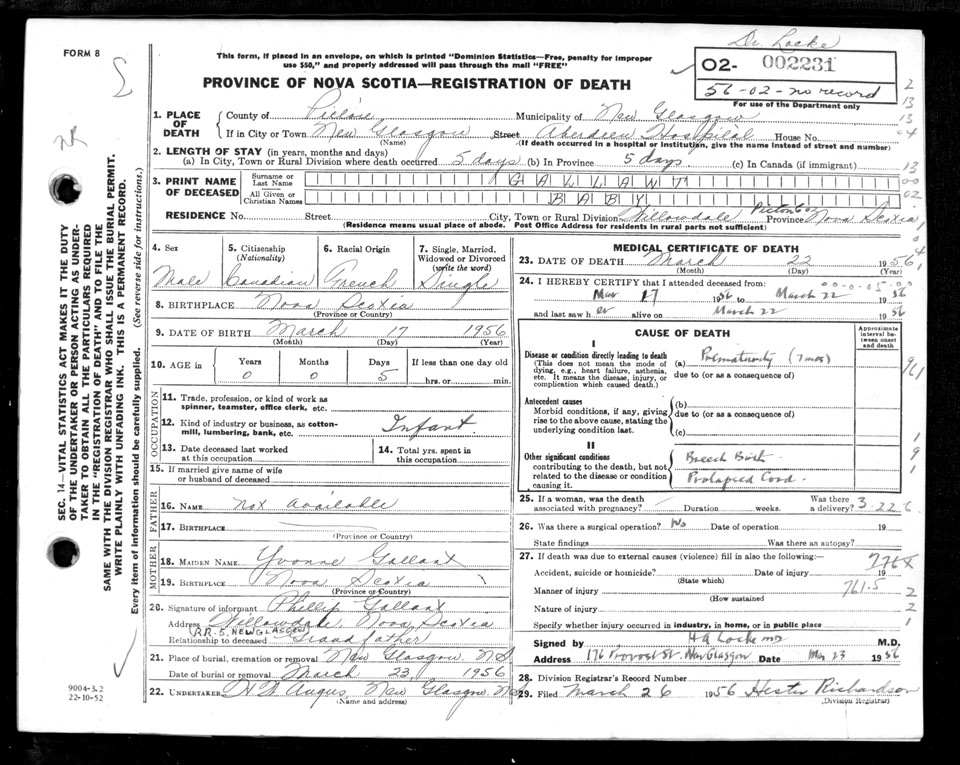 FORM 8
Dr. Locke
This form, if placed in an envelope, on which is printed "Dominion Statistics—Free, penalty for improper
use $50," and properly addressed will pass through the mail "FREE"
O2- 002231
PROVINCE OF NOVA SCOTIA—REGISTRATION OF DEATH
56-02-no record
For use of the Department only
1. PLACE OF DEATH
County of Pictou Municipality of New Glasgow
If in City or Town New Glasgow Street Aberdeen Hospital House No.
(Name) (If death occurred in a hospital or institution, give the name instead of street and number)
2. LENGTH OF STAY (in years, months and days)
(a) In City, Town or Rural Division where death occurred 5 days (b) In Province 5 days. (c) In Canada (if immigrant)
3. PRINT NAME OF DECEASED
Surname or Last Name GALLANT
All Given or Christian Names BABY
RESIDENCE No. Street City, Town or Rural Division Willowdale Pictou Co. Province Nova Scotia
(Residence means usual place of abode. Post Office Address for residents in rural parts not sufficient)
4. Sex
Male
5. Citizenship
(Nationality)
Canadian
6. Racial Origin
French
7. Single, Married, Widowed or Divorced
(write the word)
Single
8. BIRTHPLACE Nova Scotia
(Province or Country)
9. DATE OF BIRTH March 17 1956
(Month) (Day) (Year)
10. AGE in Years Months Days If less than one day old
0 0 5 hrs. or min.
OCCUPATION
11. Trade, profession, or kind of work as
spinner, teamster, office clerk, etc.
12. Kind of industry or business, as cotton-
mill, lumbering, bank, etc. Infant
13. Date deceased last worked
at this occupation
14. Total yrs. spent in
this occupation
15. If married give name of wife
or husband of deceased
FATHER
16. NAME Not Available
17. BIRTHPLACE
(Province or Country)
MOTHER
18. MAIDEN NAME Yvonne Gallant
19. BIRTHPLACE Nova Scotia
(Province or Country)
20. Signature of informant Phillip Gallant
Address Willowdale, Nova Scotia
(R.R-5. NEW GLASGOW)
Relationship to deceased Grandfather
21. Place of burial, cremation or removal New Glasgow N.S
Date of burial or removal March 23 1956
22. UNDERTAKER H W Angus, New Glasgow. N.S
(Name and address)
MEDICAL CERTIFICATE OF DEATH
23. DATE OF DEATH March 22 1956
(Month) (Day) (Year)
24. I HEREBY CERTIFY that I attended deceased from:
00-0-05-00
Mar 17 1956 to March 22 1956
and last saw h er alive on March 22 1956
CAUSE OF DEATH
Approximate interval between onset and death
I
Disease or condition directly leading to death
(This does not mean the mode of
dying, e.g., heart failure, asthenia,
etc. It means the disease, injury, or
complication which caused death.)
(a) Prematurity (7 mos)
due to (or as a consequence of)
Antecedent causes
Morbid conditions, if any, giving
rise to the above cause, stating the
underlying condition last.
(b)
due to (or as a consequence of)
(c)
II
Other significant conditions
contributing to the death, but not
related to the disease or condition
causing it.
Breech Birth
Prolapsed Cord.
25. If a woman, was the death
associated with pregnancy? Duration weeks. Was there
a delivery? 3.22.6
26. Was there a surgical operation? No Date of operation 19
State findings Was there an autopsy?
27. If death was due to external causes (violence) fill in also the following:
776X
Accident, suicide or homicide? Date of injury 19
(State which)
Manner of injury 761.5
(How sustained
Nature of injury
Specify whether injury occurred in industry, in home, or in public place
Signed by HA Locke MD M.D.
Address 176 Provost St. New Glasgow Date Mar 23 1956
28. Division Registrar's Record Number
29. Filed March 26 1956 Hester Richardson
(Division Registrar)
SEC. 14—VITAL STATISTICS ACT MAKES IT THE DUTY
OF THE UNDERTAKER OR PERSON ACTING AS UNDER-
TAKER TO OBTAIN ALL THE PARTICULARS REQUIRED
IN THE "REGISTRATION OF DEATH" AND TO FILE THE
SAME WITH THE DIVISION REGISTRAR WHO SHALL ISSUE THE BURIAL PERMIT.
WRITE PLAINLY WITH UNFADING INK. THIS IS A PERMANENT RECORD.
Every item of information should be carefully supplied. (See reverse side for instructions.)
9004-3.2
22-10-52